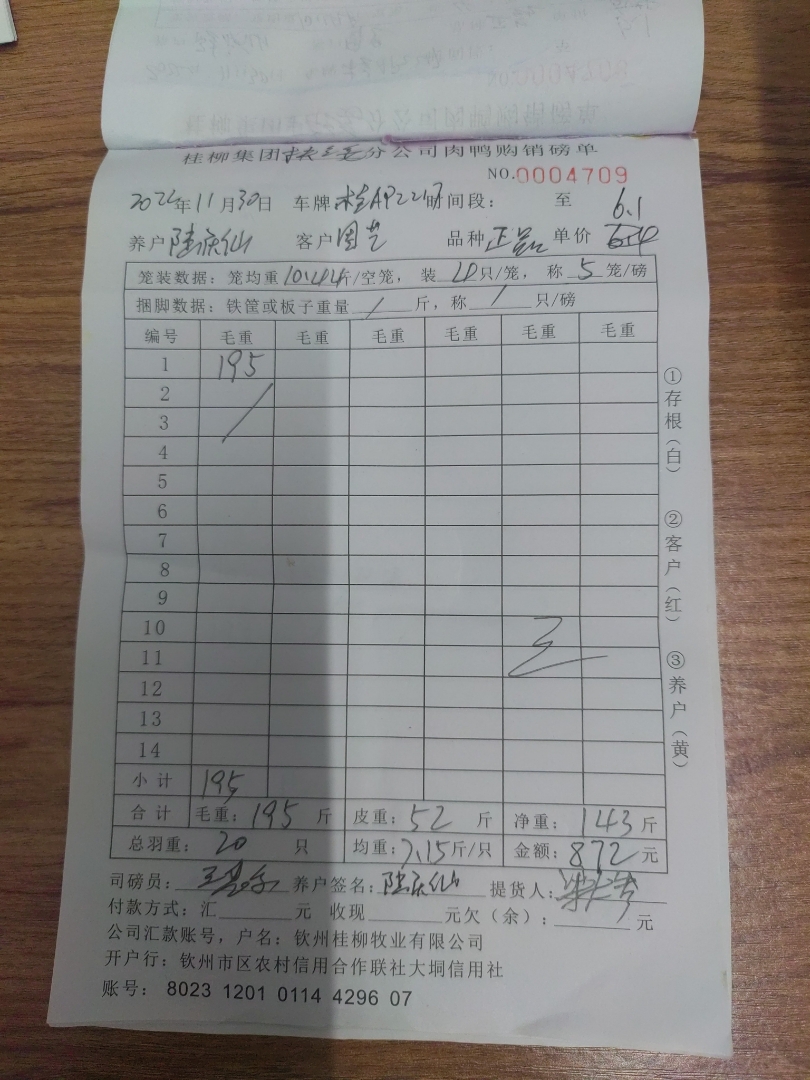 桂柳集团 分公司肉鸭购销磅单
NO.0004709
年11月30日 车牌 时间段： 至 6.1
养户 陆庆仙 客户 品种 正品 单价
笼装数据：笼均重10.44斤/空笼，装 只/笼，称 5 笼/磅
捆脚数据：铁筐或板子重量 / 斤，称 / 只/磅
编号 毛重 毛重 毛重 毛重 毛重 毛重
1 195
2
3
4
5
6
7
8
9
10
11
12
13
14
小计 195
合计 毛重：195 斤 皮重：52 斤 净重：143 斤
总羽重：20 只 均重：7.15斤/只 金额：872 元
司磅员： 养户签名：陆庆仙 提货人：
付款方式：汇 元 收现 元欠（余）： 元
公司汇款账号，户名：钦州桂柳牧业有限公司
开户行：钦州市区农村信用合作联社大垌信用社
账号：8023 1201 0114 4296 07
①存根（白）
②客户（红）
③养户（黄）